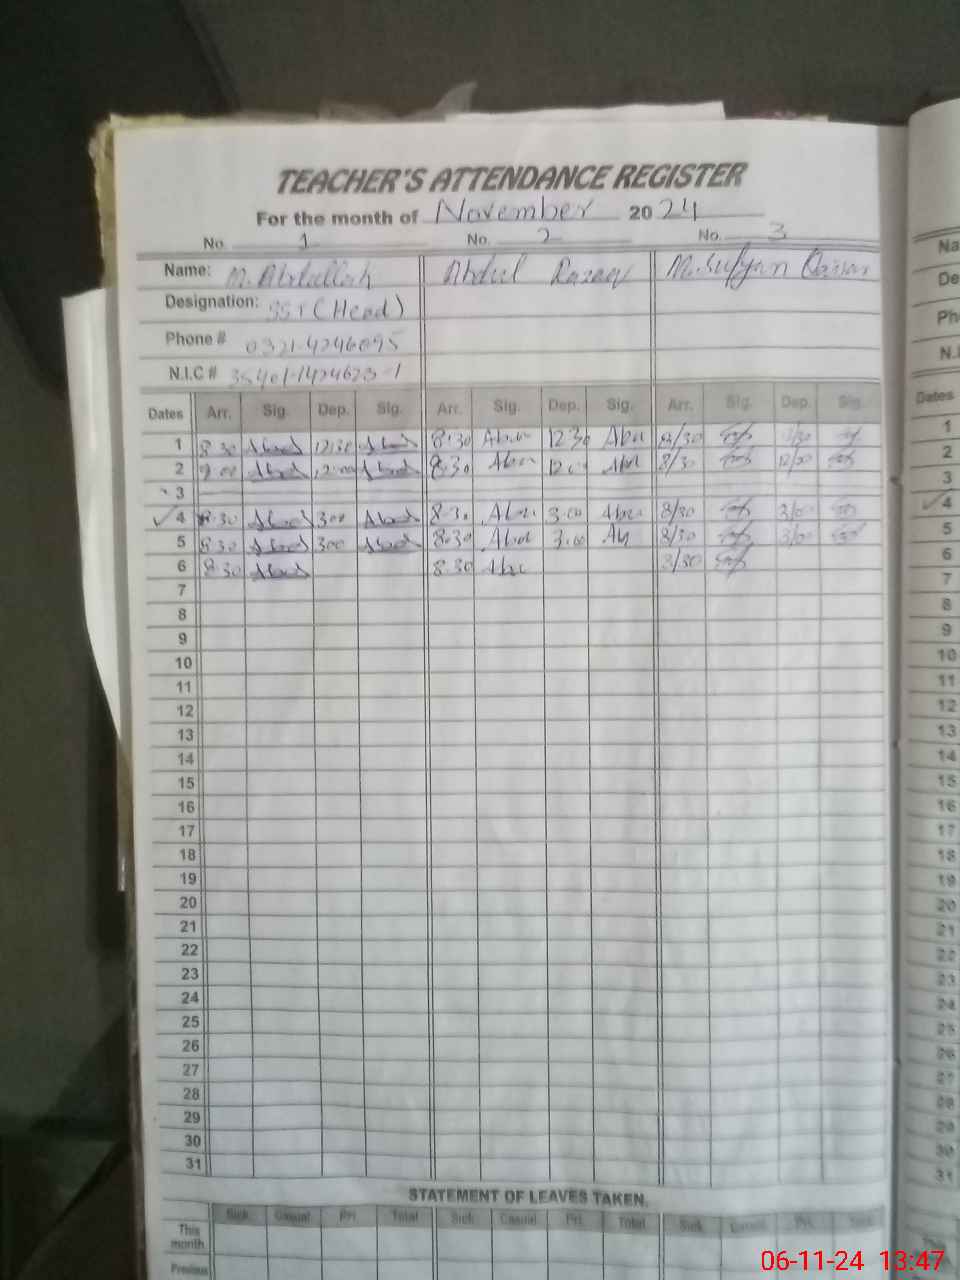 TEACHER'S ATTENDANCE REGISTER
For the month of November 2024
No. 1 No. 2 No. 3
Name: M. Abdullah Abdul Razaq M. Sufyan
Designation: SST (Head)
Phone # 0321-4246095
N.I.C # 35401-1424623-1
Dates Arr. Sig. Dep. Sig. Arr. Sig. Dep. Sig. Arr. Sig. Dep. Sig.
1 8:30 12:30 8:30 12:30 8/30
2 9:00 12:00 8:30 8/30 12/00
3
4 8:30 3:00 8:30 3:00 8/30 3/00
5 8:30 3:00 8:30 3:00 8/30 3/00
6 8:30 8:30 8/30
7
8
9
10
11
12
13
14
15
16
17
18
19
20
21
22
23
24
25
26
27
28
29
30
31
STATEMENT OF LEAVES TAKEN.
Sick. Casual. Pri. Total Sick. Casual. Pri. Total Sick. Casual. Pri.
This month
Previous
Na
De
Ph
N.I
Dates
1
2
3
4
5
6
7
8
9
10
11
12
13
14
15
16
17
18
19
20
21
22
23
24
25
26
27
28
29
30
31
06-11-24 13:47